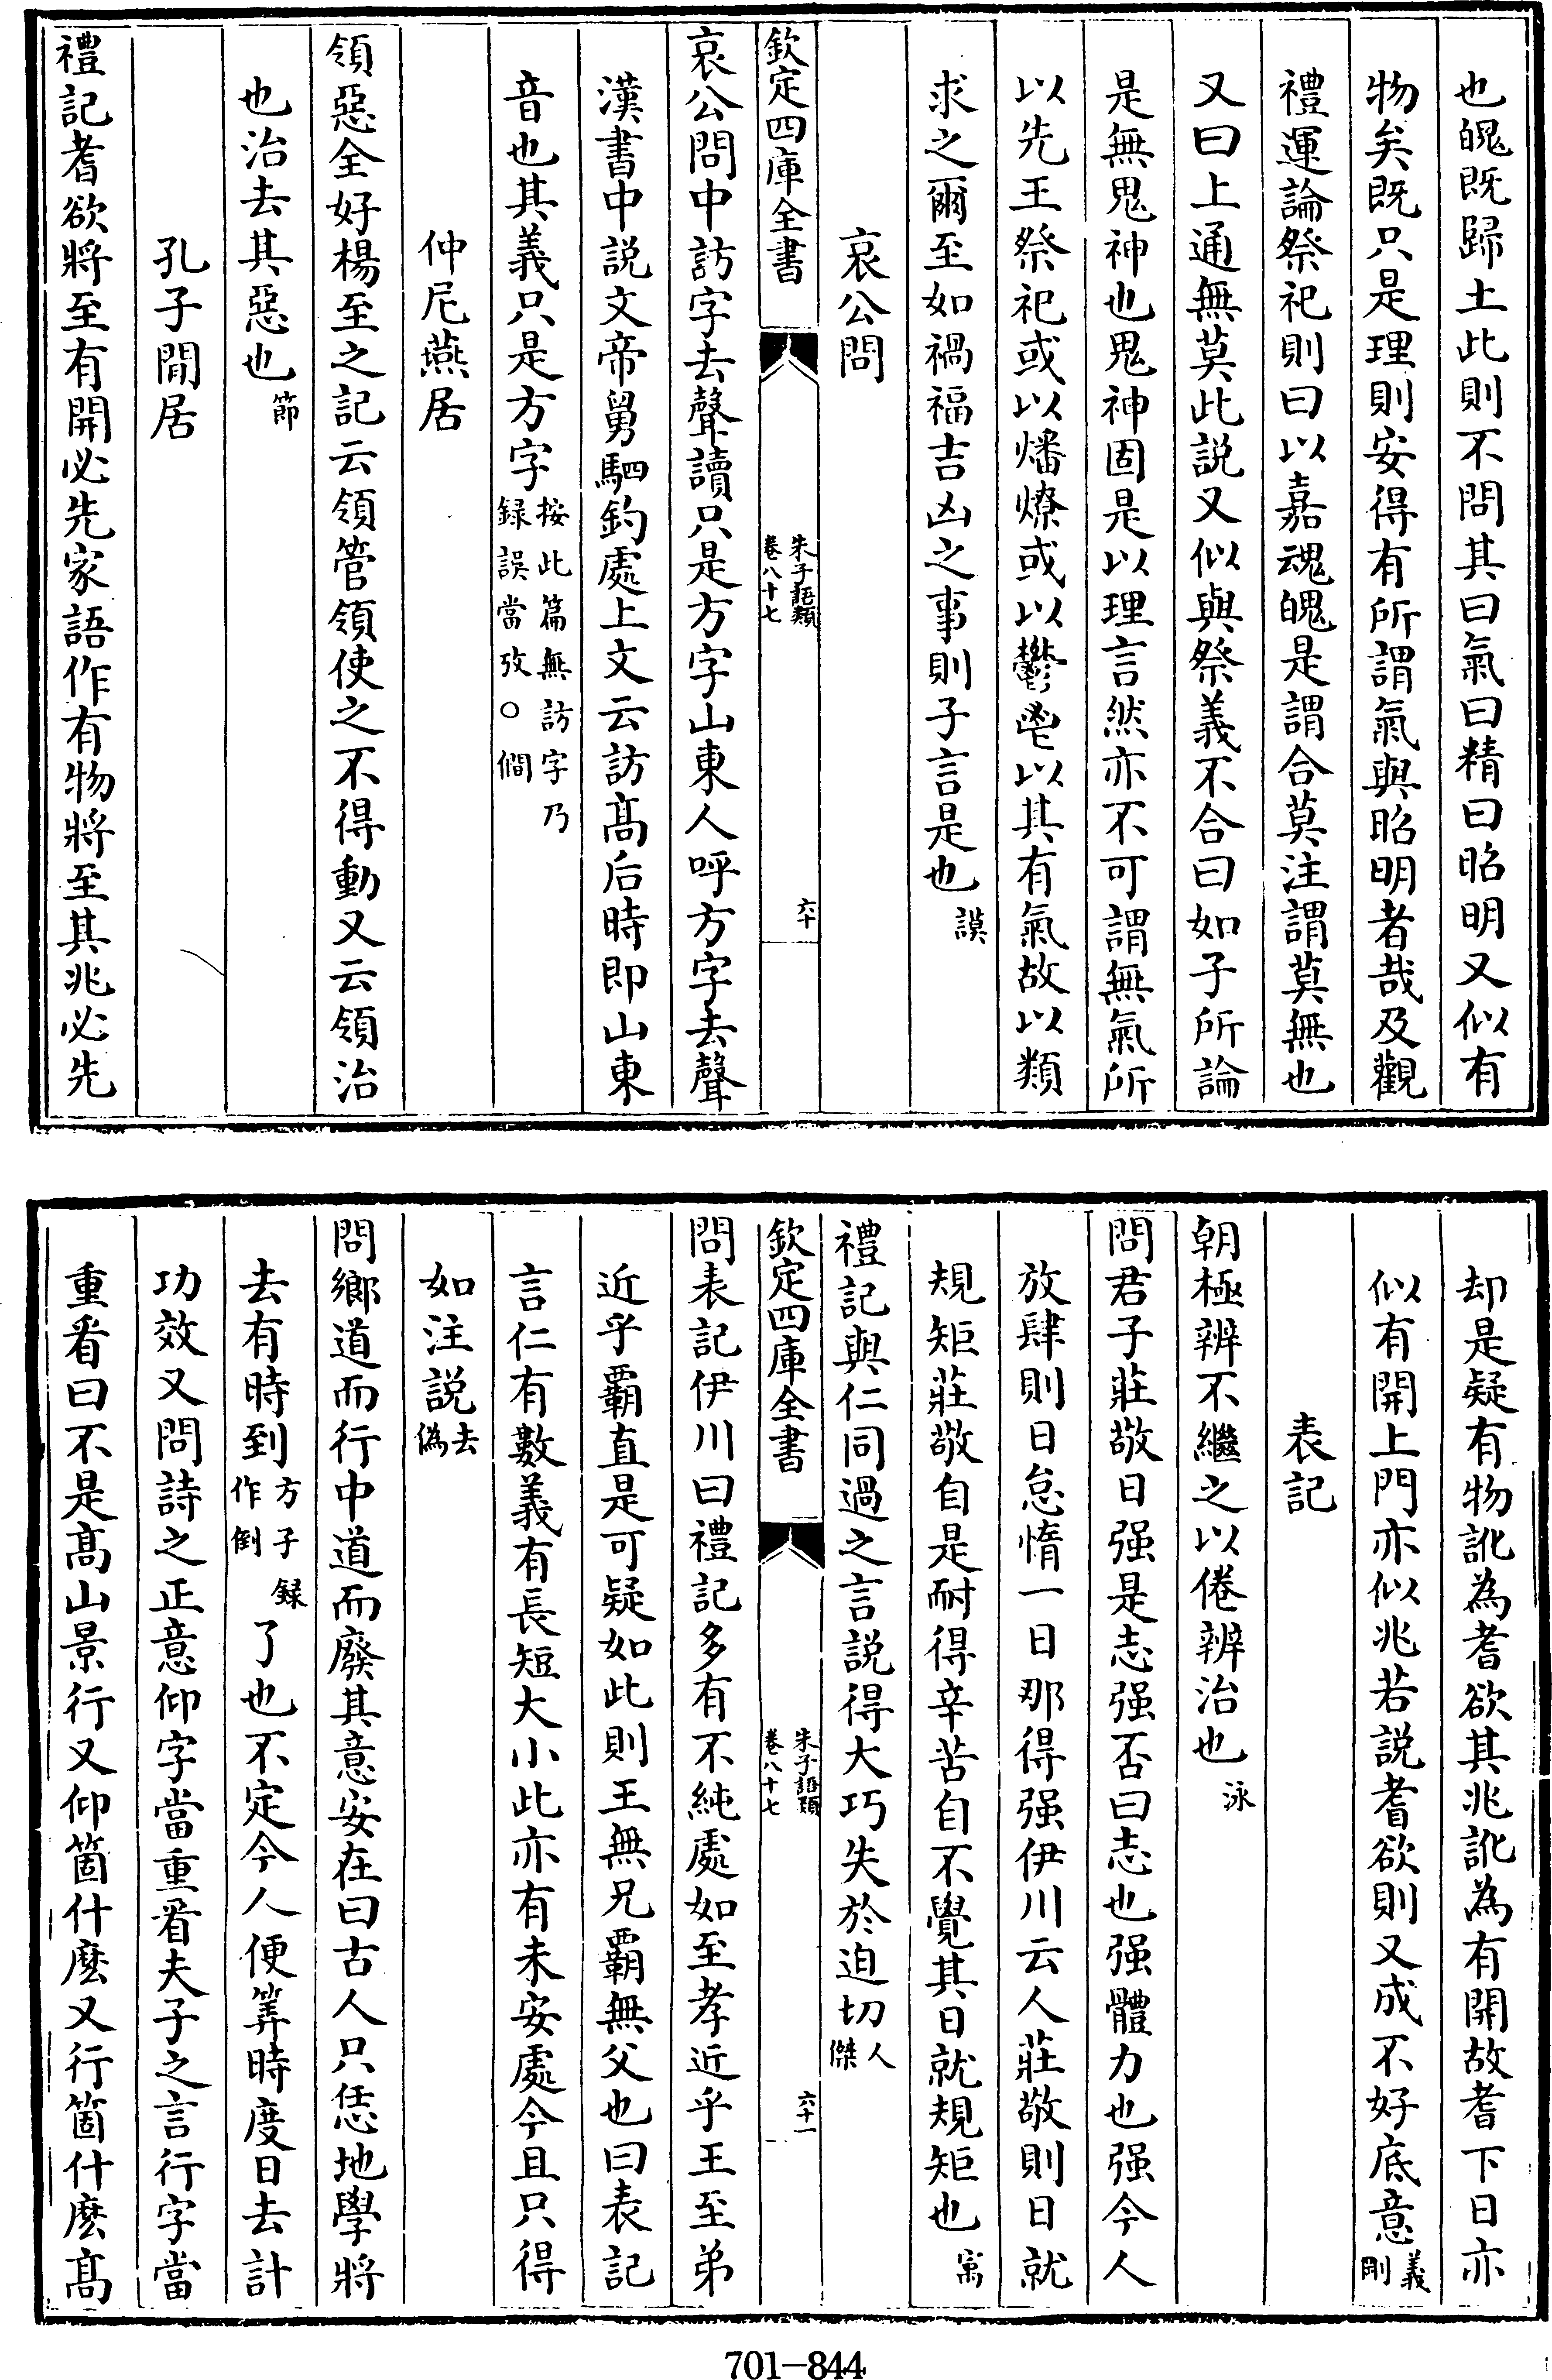 也魄既歸土此則不問其曰氣曰精曰昭明又似有
物矣既只是理則安得有所謂氣與昭明者哉及觀
禮運論祭祀則曰以嘉魂魄是謂合莫注謂莫無也
又曰上通無莫此説又似與祭義不合曰如子所論
是無鬼神也鬼神固是以理言然亦不可謂無氣所
以先王祭祀或以燔燎或以鬱鬯以其有氣故以類
求之爾至如禍福吉凶之事則子言是也謨
哀公問
欽定四庫全書
朱子語類
卷八十七
六十
哀公問中訪字去聲讀只是方字山東人呼方字去聲
漢書中説文帝舅駟鈞處上文云訪髙后時即山東
音也其義只是方字按此篇無訪字乃録誤當攷○僩
仲尼燕居
領惡全好楊至之記云領管領使之不得動又云領治
也治去其惡也節
孔子閒居
禮記耆欲將至有開必先家語作有物將至其兆必先
却是疑有物訛為耆欲其兆訛為有開故耆下日亦
似有開上門亦似兆若説耆欲則又成不好底意義剛
表記
朝極辨不繼之以倦辨治也泳
問君子莊敬日强是志强否曰志也强體力也强今人
放肆則日怠惰一日那得强伊川云人莊敬則日就
規矩莊敬自是耐得辛苦自不覺其日就規矩也㝢
禮記與仁同過之言説得大巧失於迫切人傑
欽定四庫全書
朱子語類
卷八十七
六十一
問表記伊川曰禮記多有不純處如至孝近乎王至弟
近乎覇直是可疑如此則王無兄覇無父也曰表記
言仁有數義有長短大小此亦有未安處今且只得
如注説去偽
問鄉道而行中道而廢其意安在曰古人只恁地學將
去有時到方子録作倒了也不定今人便筭時度日去計
功效又問詩之正意仰字當重看夫子之言行字當
重看曰不是髙山景行又仰箇什麽又行箇什麽髙
701-844